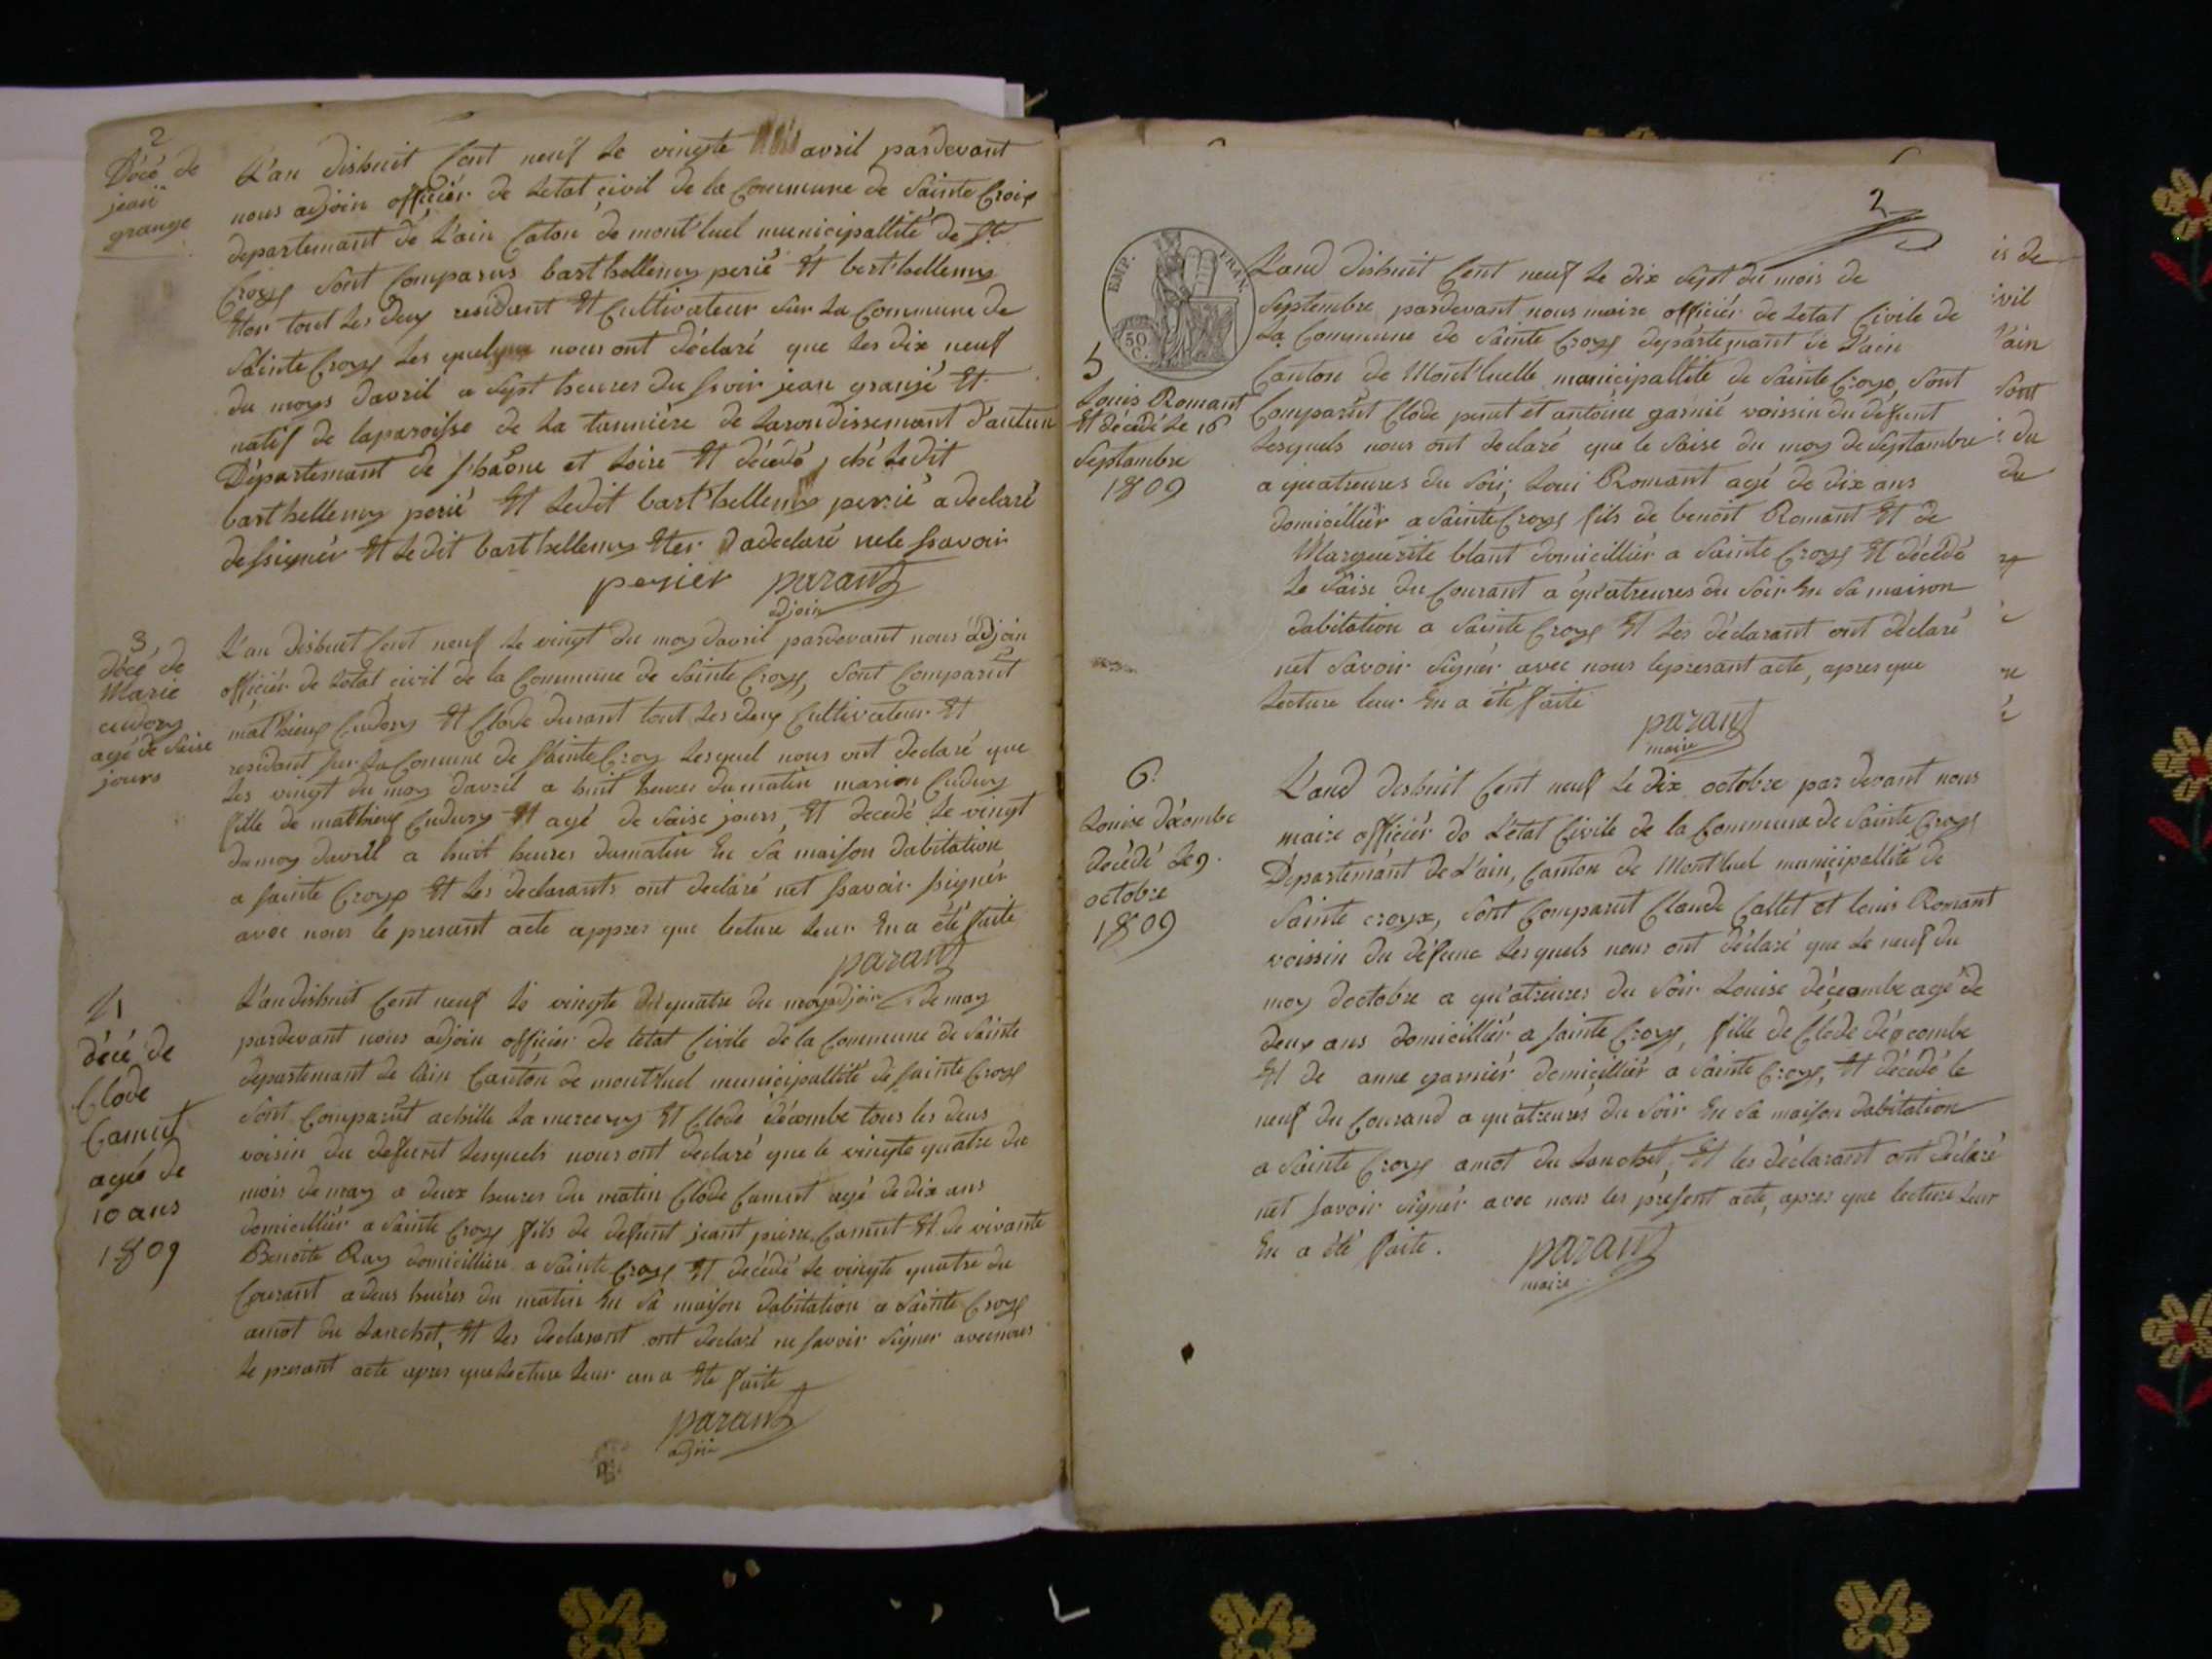 2
Décé de
jean
grange
L'an dishuit Cent neuf le vingte avril pardevant
nous adjoin officiér de Letat civil de la Commune de Sainte Croix
departemant de L'ain Caton de mont'luel municipallité de Ste
Croye sont Comparus barthellemy perié Et bart'hellemy
Eter tout les deux residant Et Cultivateur sur La Commune de
Sainte Croye Les quelque nous ont déclaré que Les dix neuf
du moys davril a sept heures du soir jean granjé Et
natif de laparoisse de La tannière de Larondissemant d'autun
Départemant de shaône et Loire Et décédé, ché Ledit
barthellemy perié Et Ledit bart'hellemy perié a declaré
dessignér Et Ledit barthellemy Eter a declaré nele ssavoir
perier parant
adjoin
3
décé de
Marie
cudory
agé de saise
jours
L'an dishuit Cent neuf Le vingt du moy davril pardevant nous adjoin
officiér de Letat civil de la Commune de Sainte Croye, Sont Comparut
mathieux Cudory Et Clode durant tout Les deux Cultivateur Et
residant sur La Comune de sainte Croy Lesquel nous ont declaré que
Les vingt du moy davril a huit heures dumatin marion Cudory
fille de mathieux Cudury Et agé de Saise jours, Et decedé Le vingt
dumoy davril a huit heures dumatin En Sa maison dabitation
a sainte Croye Et Les declarants ont declaré net ssavoir signér
avec nous le presant acte appres que lecture Leur En a été faite
parant
adjoin
4
décé de
Clode
Camut
agés de
10 ans
1809
L'an dishuit Cent neuf Le vingte quatre du moy de may
pardevant nous adjoin officiér de letat Civile de la Commune de Sainte
departemant de lain Canton de mont'luel municipallité de sainte Croye
sont Comparut achille La mercery Et Clode décombe tous les deus
voisin du defunt Lesquels nous ont declaré que le vingte quatre du
mois de may a deux heures du matin Clode Camut agé de dix ans
domicillier a Sainte Croye fils de defunt jeant pierre Camut Et de vivante
Benoite Ray domicilliere a Sainte Croye Et décédé Le vingte quatre du
Courant a deus heures du matin En Sa maison dabitation a Sainte Croye
amot du Lanchet, Et Les declarant ont declaré ne savoir Signer avecnous
Le presant acte apres que Lecture Leur en a Ete faite
parant
adjoin
2
EMP. FRAN.
50 C.
5
Louis Romant
Et décédé Le 16
Septambre
1809
L'and dishuit Cent neuf Le dix sept du mois de
Septembre pardevant nous maire officiér de Letat Civile de
La Commune de Sainte Croye départemant de L'ain
Canton de Mont'luelle municipallité de Sainte Croye, Sont
Comparut Clode penet et antoine garnié voissin du défunt
Lesquels nous ont declaré que le Saise du moy de Septambre
a quatreures du Soir, Loui Romant agé de dix ans
domicilliér a Sainte Croye fils de benoit Romant Et de
Marguerite blant domicilliér a Sainte Croye Et décédé
Le Saise du Courant a quatreures du Soir En Sa maison
dabitation a Sainte Croye Et Les déclarant ont déclaré
net Savoir Signér avec nous lepresant acte, apres que
Lecture leur En a été faite
parant
maire
6.
Louise décombe
décédé Le 9.
octobre
1809
L'and dishuit Cent neuf Le dix octobre par devant nous
maire officiér de L'etat Civile de la Commune de Sainte Croye
Départemant de L'ain, Canton de Mont'luel municipallité de
Sainte croyx, Sont Comparut Claude Callet et louis Romant
voissin du défunc Lesquels nous ont déclaré que Le neuf du
moy doctobre a quatreures du Soir Louise décombe agé de
deux ans domicilliér a sainte Croye, fille de Clode décombe
Et de anne garniér domicilliér a Sainte Croye, Et décédé le
neuf du Courand a quatreures du Soir En Sa maison dabitation
a Sainte Croye amot du Lanchet, Et les déclarant ont déclaré
net savoir signér avec nous les présent acte, apres que lecture Leur
En a été faite.
parant
maire
is de
ivil
l'ain
Sont
du
du